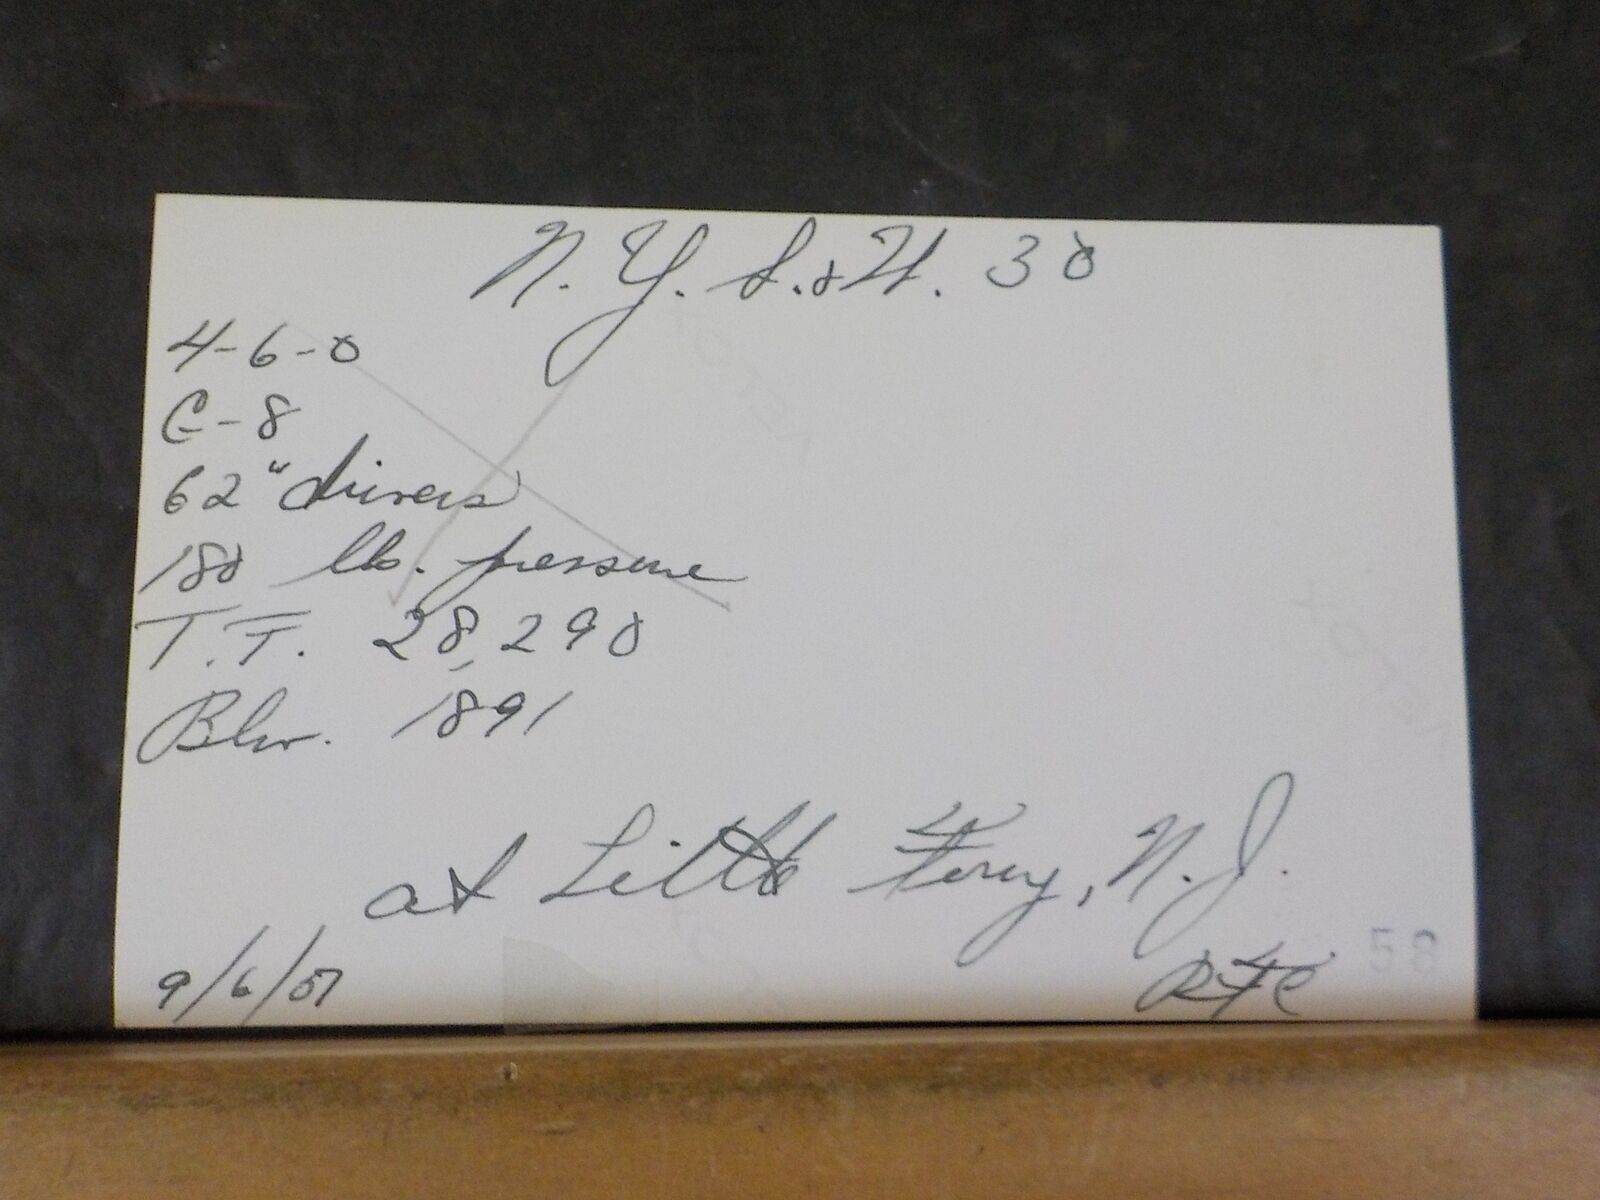 N.Y.S.&W. 30
4-6-0
G-8
62" drivers
180 lb. pressure
T.T. 28,290
Blw. 1891
at Little Ferry, N.J.
9/6/07
58